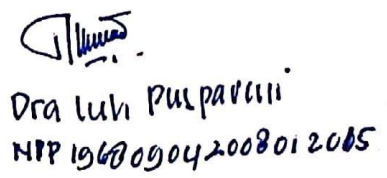 Dra Luh Puspawini
NPP 196809042008012065